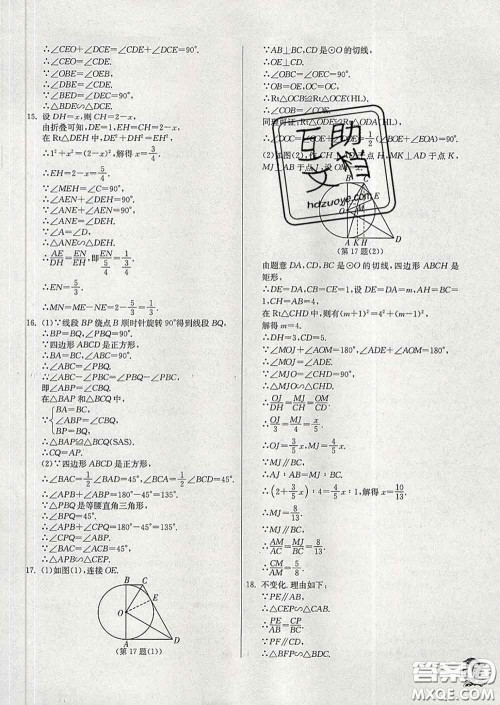 ∴∠CEO+∠DCE=∠CDE+∠DCE=90°.
∴∠CEO=∠CDE.
∵∠OBE=∠OEB,
∴∠OBE=∠CDE.
∵∠BED=∠DCE=90°,
∴△BDE∽△DCE.
15. 设 DH=x,则 CH=2-x,
由折叠可知,DE=1,EH=CH=2-x,
在 Rt△DEH 中,DE²+DH²=EH²,
∴1²+x²=(2-x)²,解得 x=3/4.
∴EH=2-x=5/4.
∵∠MEH=∠C=90°,
∴∠AEN+∠DEH=90°.
∵∠ANE+∠AEN=90°,
∴∠ANE=∠DEH.
∴AE/DH=EN/EH,即 1/(3/4)=EN/(5/4).
∴EN=5/3.
∴MN=ME-NE=2-5/3=1/3.
16. (1)∵线段 BP 绕点 B 顺时针旋转 90°得到线段 BQ,
∴BP=BQ,∠PBQ=90°.
∵四边形 ABCD 是正方形,
∴BA=BC,∠ABC=90°.
∴∠ABC=∠PBQ.
∴∠ABC-∠PBC=∠PBQ-∠PBC,
即∠ABP=∠CBQ.
在△BAP 和△BCQ 中,
BA=BC,
∠ABP=∠CBQ,
BP=BQ,
∴△BAP≌△BCQ(SAS).
∴CQ=AP.
(2)∵四边形 ABCD 是正方形,
∴∠BAC=1/2∠BAD=45°,∠BCA=1/2∠BCD=45°.
∴∠APB+∠ABP=180°-45°=135°.
∵△PBQ 是等腰直角三角形,
∴∠BPQ=45°.
∴∠APB+∠CPQ=180°-45°=135°.
∴∠CPQ=∠ABP.
∵∠BAC=∠ACB=45°,
∴△APB∽△CQP.
17. (1)如图(1),连接 OE.
B C
E
O
A D
(第 17 题(1))
∵AB⊥BC,CD 是⊙O 的切线,
∴OE⊥CD.
∴∠OBC=∠OEC=90°.
∴Rt△OBC≌Rt△OEC(HL).
互助文档
hdzuoye.com
B C
E
A K H D
(第 17 题(2))
由题意 DA,CD,BC 是⊙O 的切线,四边形 ABCH 是
矩形,
∴DE=DA,CB=CE,CH=AB=4.
在 Rt△CHD 中,
∴(m+1)²=4²+(m-1)²,
解得 m=4.
∴DH=3,CD=5.
∵∠MOJ+∠AOE=180°,∠ADE+∠AOE=180°,
∴∠MOJ=∠ADE.
∵∠MJO=∠CHD=90°,
∴△MJO∽△CHD.
∴OJ/DH=MJ/CH=OM/CD.
∴OJ/3=MJ/4=x/5.
∴OJ=3/5x,MJ=4/5x.
∵MJ∥BC,
∴AJ:AB=MJ:BC.
∴(2+3/5x):4=4/5x:1,解得 x=10/13.
∴MJ=8/13.
∵MJ∥BC,
∴AM/AC=MJ/BC=8/13.
∴AM/MC=8/5.
18. 不变化. 理由如下:
∵PE∥AB,
∴△CEP∽△CAB.
∴PE/AB=CP/CB.
∵PF∥AC,
∴△BFP∽△BCD.
答案圈
MXQE.COM